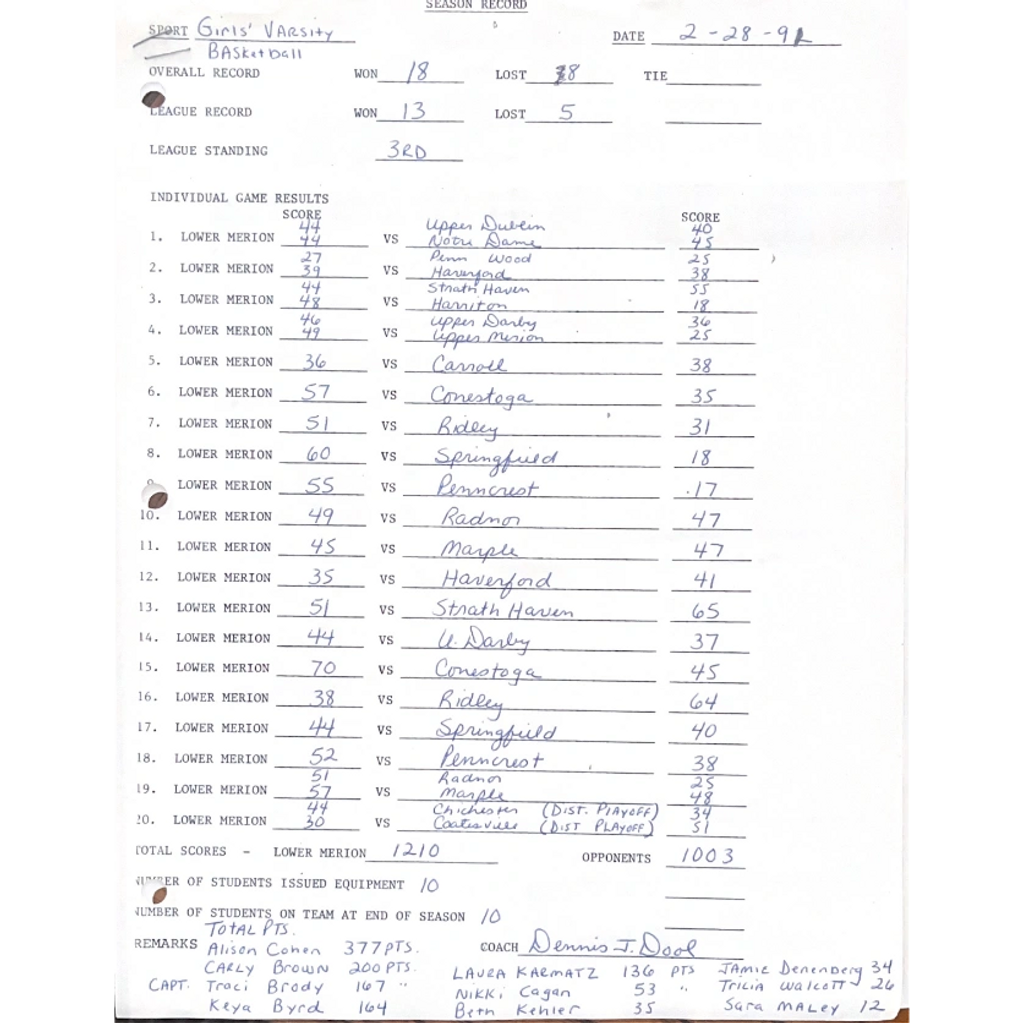 SEASON RECORD
SPORT Girls' Varsity DATE 2-28-92
Basketball
OVERALL RECORD WON 18 LOST 8 TIE
LEAGUE RECORD WON 13 LOST 5
LEAGUE STANDING 3RD
INDIVIDUAL GAME RESULTS
SCORE SCORE
44 Upper Dublin 40
1. LOWER MERION 44 VS Notre Dame 45
27 Penn Wood 25
2. LOWER MERION 39 VS Haverford 38
44 Strath Haven 55
3. LOWER MERION 48 VS Harriton 18
46 Upper Darby 36
4. LOWER MERION 49 VS Upper Merion 25
5. LOWER MERION 36 VS Carroll 38
6. LOWER MERION 57 VS Conestoga 35
7. LOWER MERION 51 VS Ridley 31
8. LOWER MERION 60 VS Springfield 18
LOWER MERION 55 VS Penncrest 17
10. LOWER MERION 49 VS Radnor 47
11. LOWER MERION 45 VS Marple 47
12. LOWER MERION 35 VS Haverford 41
13. LOWER MERION 51 VS Strath Haven 65
14. LOWER MERION 44 VS U. Darby 37
15. LOWER MERION 70 VS Conestoga 45
16. LOWER MERION 38 VS Ridley 64
17. LOWER MERION 44 VS Springfield 40
18. LOWER MERION 52 VS Penncrest 38
51 Radnor 25
19. LOWER MERION 57 VS Marple 48
44 Chichester (Dist. Playoff) 34
20. LOWER MERION 30 VS Coatesville (Dist Playoff) 51
TOTAL SCORES - LOWER MERION 1210 OPPONENTS 1003
NUMBER OF STUDENTS ISSUED EQUIPMENT 10
NUMBER OF STUDENTS ON TEAM AT END OF SEASON 10
Total Pts.
REMARKS Alison Cohen 377 pts. COACH Dennis J. Dool
Carly Brown 200 pts. Laura Karmatz 136 pts Jamie Denenberg 34
CAPT. Traci Brody 167 " Nikki Cagan 53 " Tricia Walcott 26
Keya Byrd 164 Beth Kehler 35 Sara Maley 12